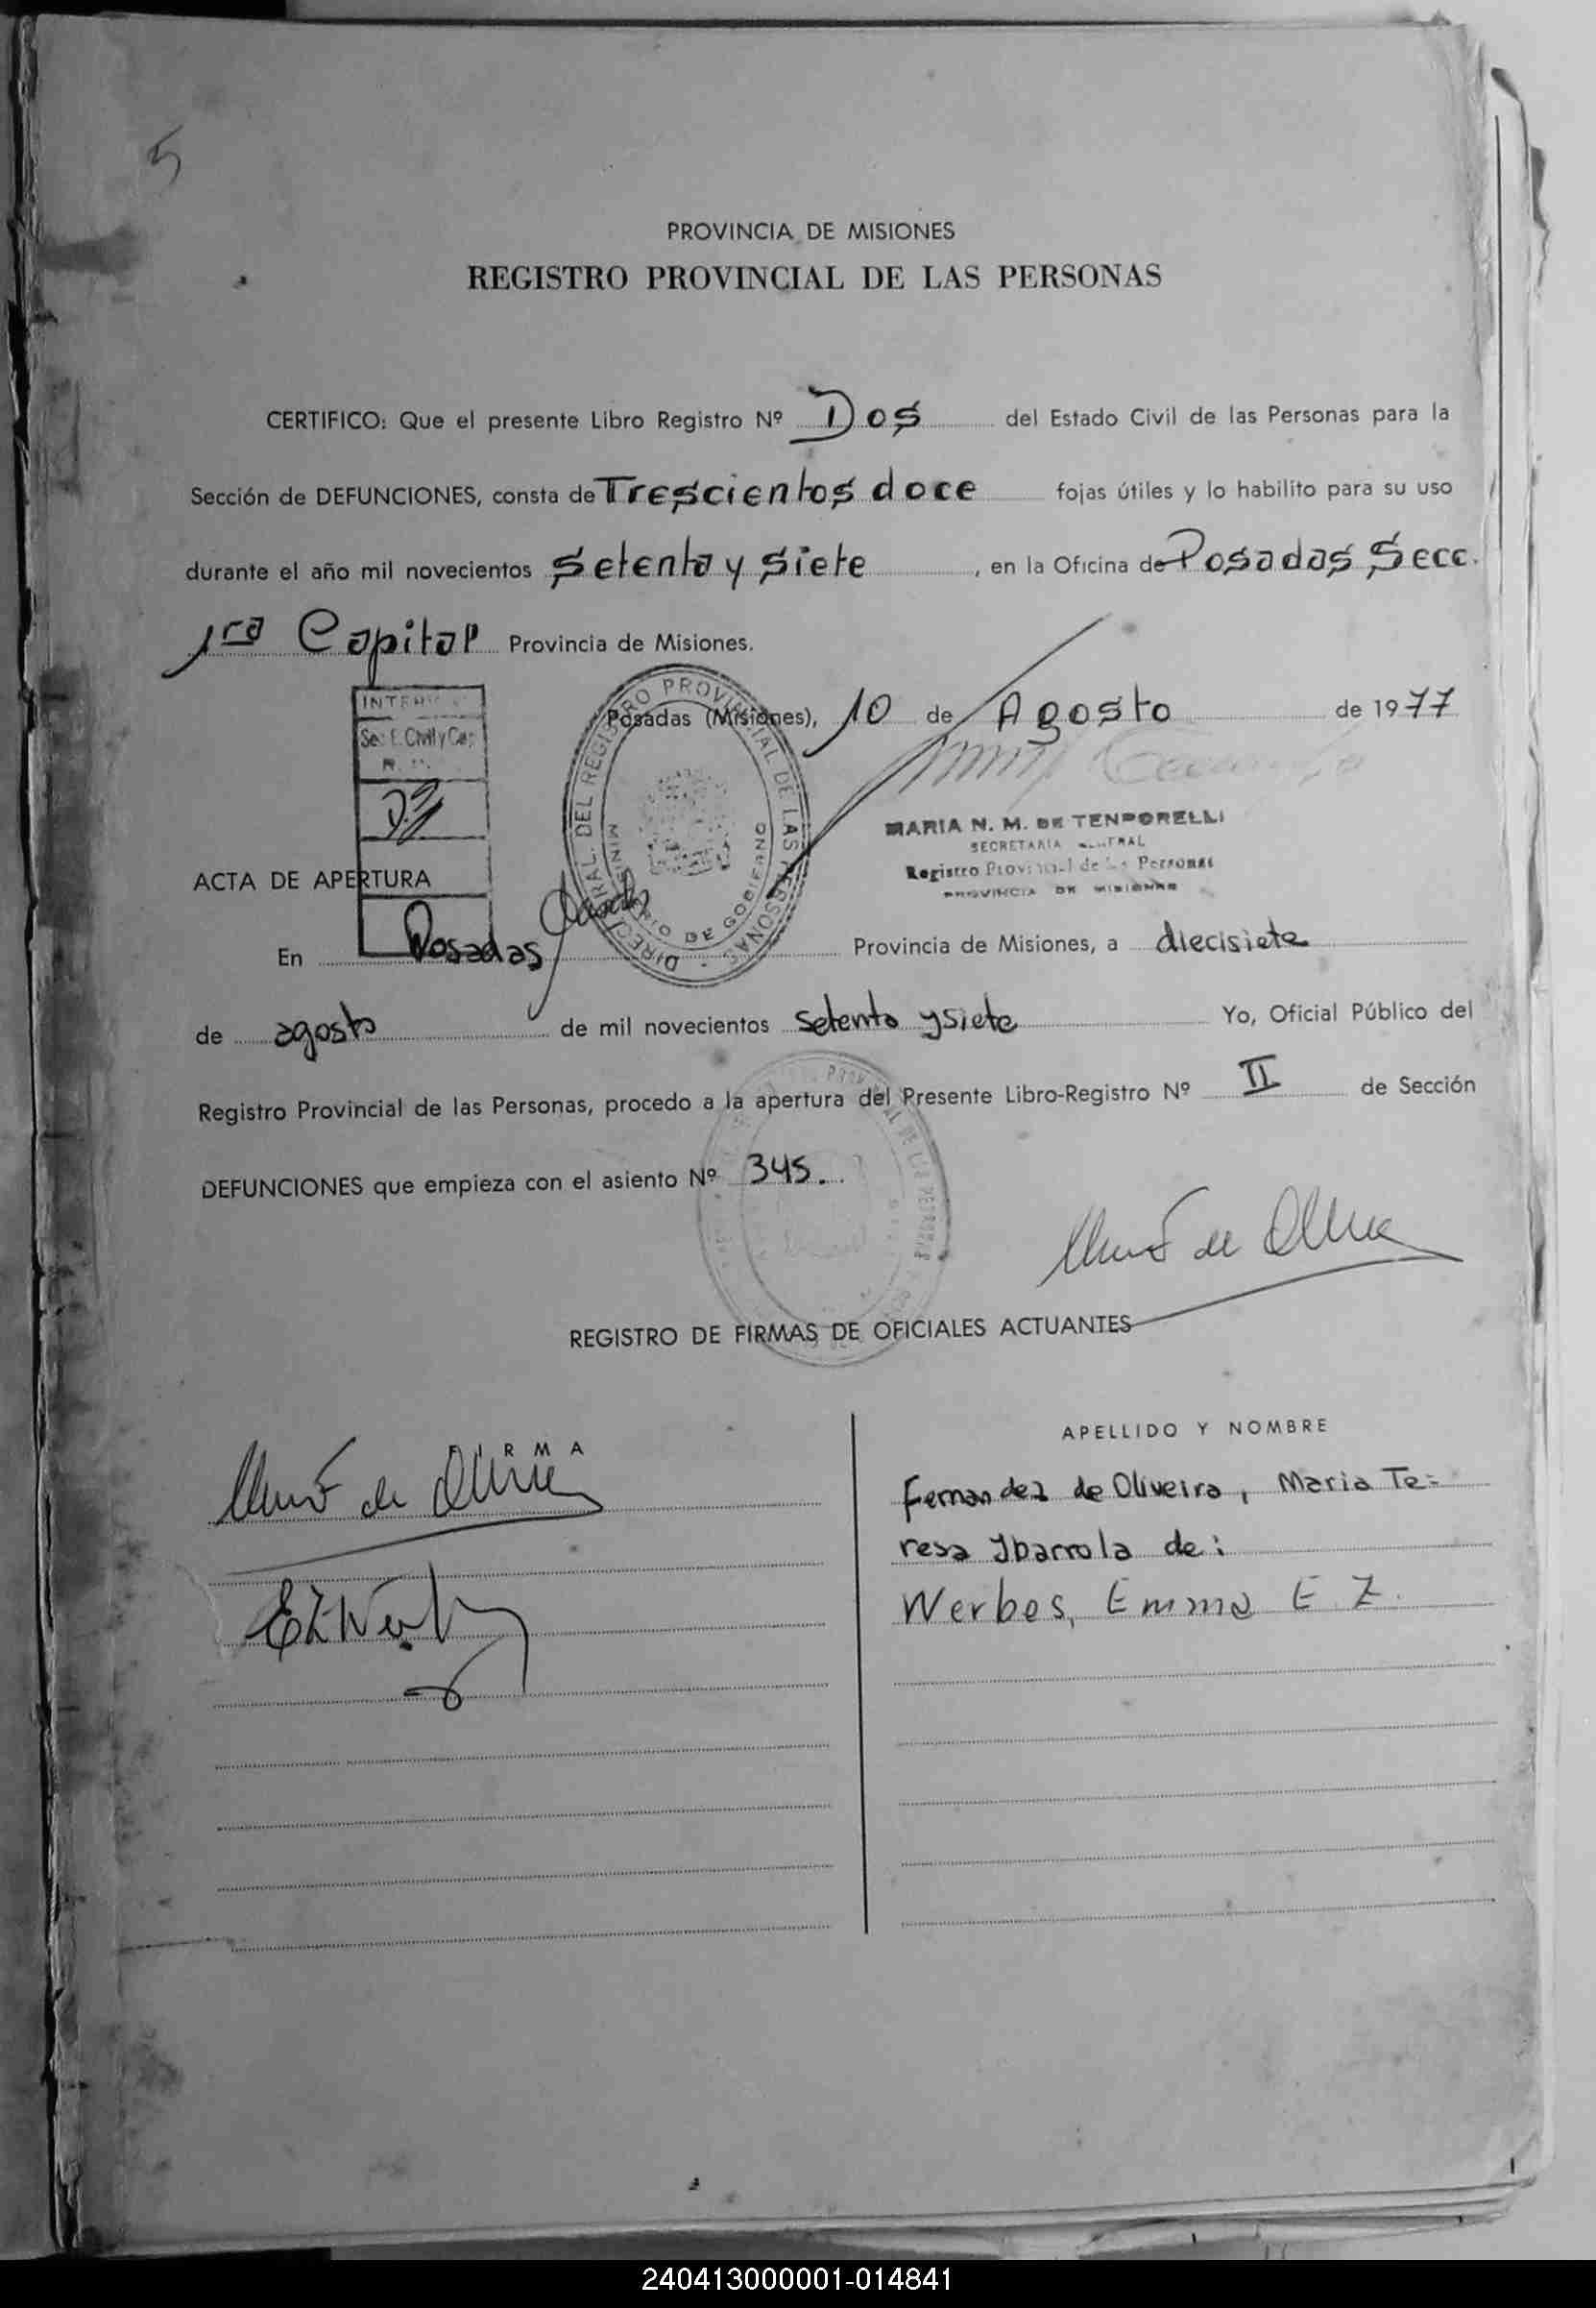 5
PROVINCIA DE MISIONES
REGISTRO PROVINCIAL DE LAS PERSONAS
CERTIFICO: Que el presente Libro Registro Nº Dos del Estado Civil de las Personas para la
Sección de DEFUNCIONES, consta de Trescientos doce fojas útiles y lo habilito para su uso
durante el año mil novecientos Setenta y Siete, en la Oficina de Posadas Secc.
1ra Capital Provincia de Misiones.
Posadas (Misiones), 10 de Agosto de 1977
MARIA N. M. DE TENPORELLI
SECRETARIA
Registro Provincial de las Personas
PROVINCIA DE MISIONES
DIREC GRAL. DEL REGISTRO PROVINCIAL DE LAS PERSONAS
MINISTERIO DE GOBIERNO
ACTA DE APERTURA
En Posadas Provincia de Misiones, a diecisiete
de agosto de mil novecientos setenta y siete Yo, Oficial Público del
Registro Provincial de las Personas, procedo a la apertura del Presente Libro-Registro Nº II de Sección
DEFUNCIONES que empieza con el asiento Nº 345.
REGISTRO DE FIRMAS DE OFICIALES ACTUANTES
FIRMA
APELLIDO Y NOMBRE
Fernandez de Oliveira, Maria Te=
resa Ybarrola de:
Werbes, Emma E Z.
240413000001-014841